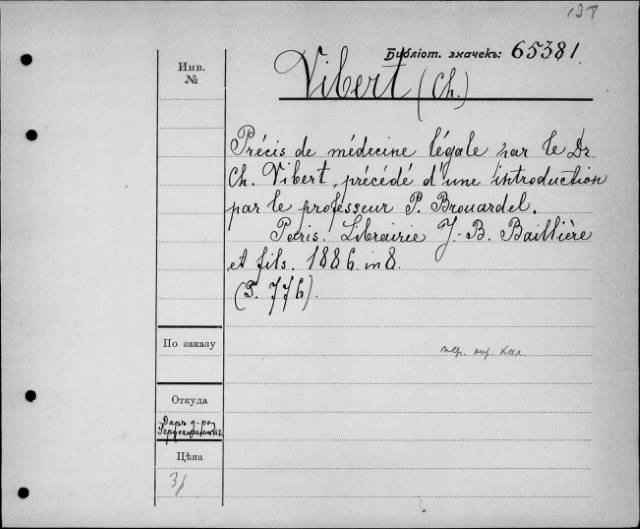 Библіот. значекъ: 65381.
Инв.
№
Vibert (Ch.)
Précis de médecine légale par le Dr
Ch. Vibert, précédé d'une introduction
par le professeur P. Brouardel.
Paris. Librairie J.-B. Baillière
et fils. 1886. in 8.
(S. 776).
По заказу
Откуда
Даръ д-ра
Цѣна
3/